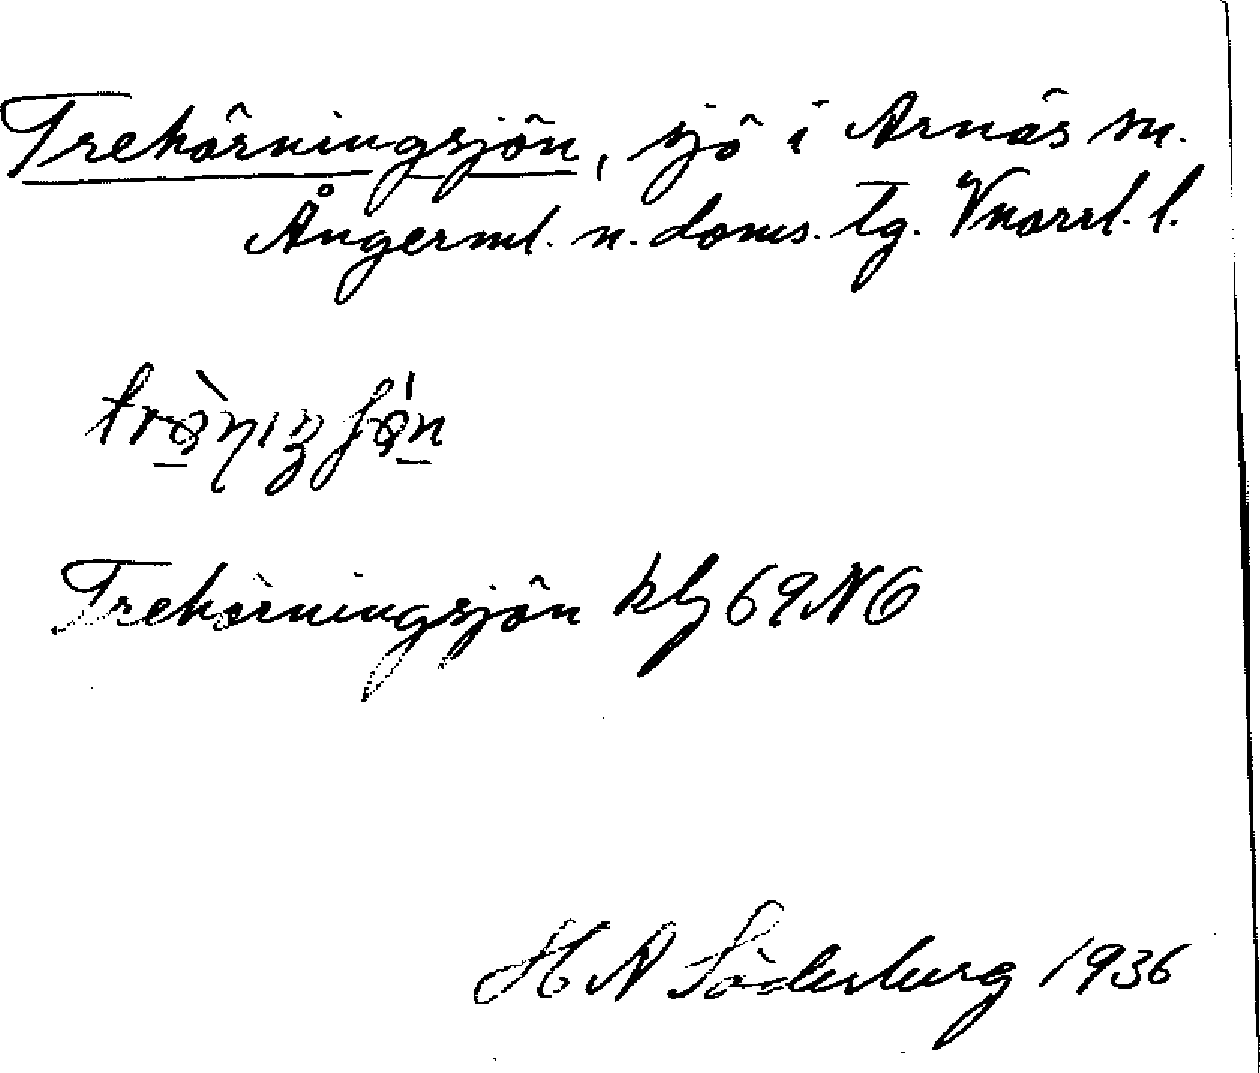 Trehörningsjön, sjö i Arnäs sn.
Ångerml. n. doms. tg. Vnorrl. l.
Trehörningsjön kbl 69 NO
H A Söderberg 1936